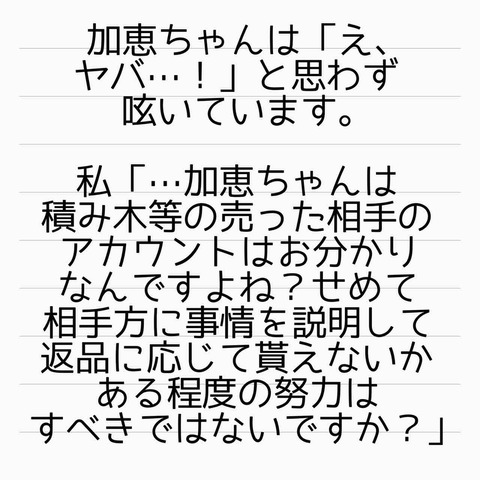 加恵ちゃんは「え、
ヤバ…！」と思わず
呟いています。
私「…加恵ちゃんは
積み木等の売った相手の
アカウントはお分かり
なんですよね？せめて
相手方に事情を説明して
返品に応じて貰えないか
ある程度の努力は
すべきではないですか？」